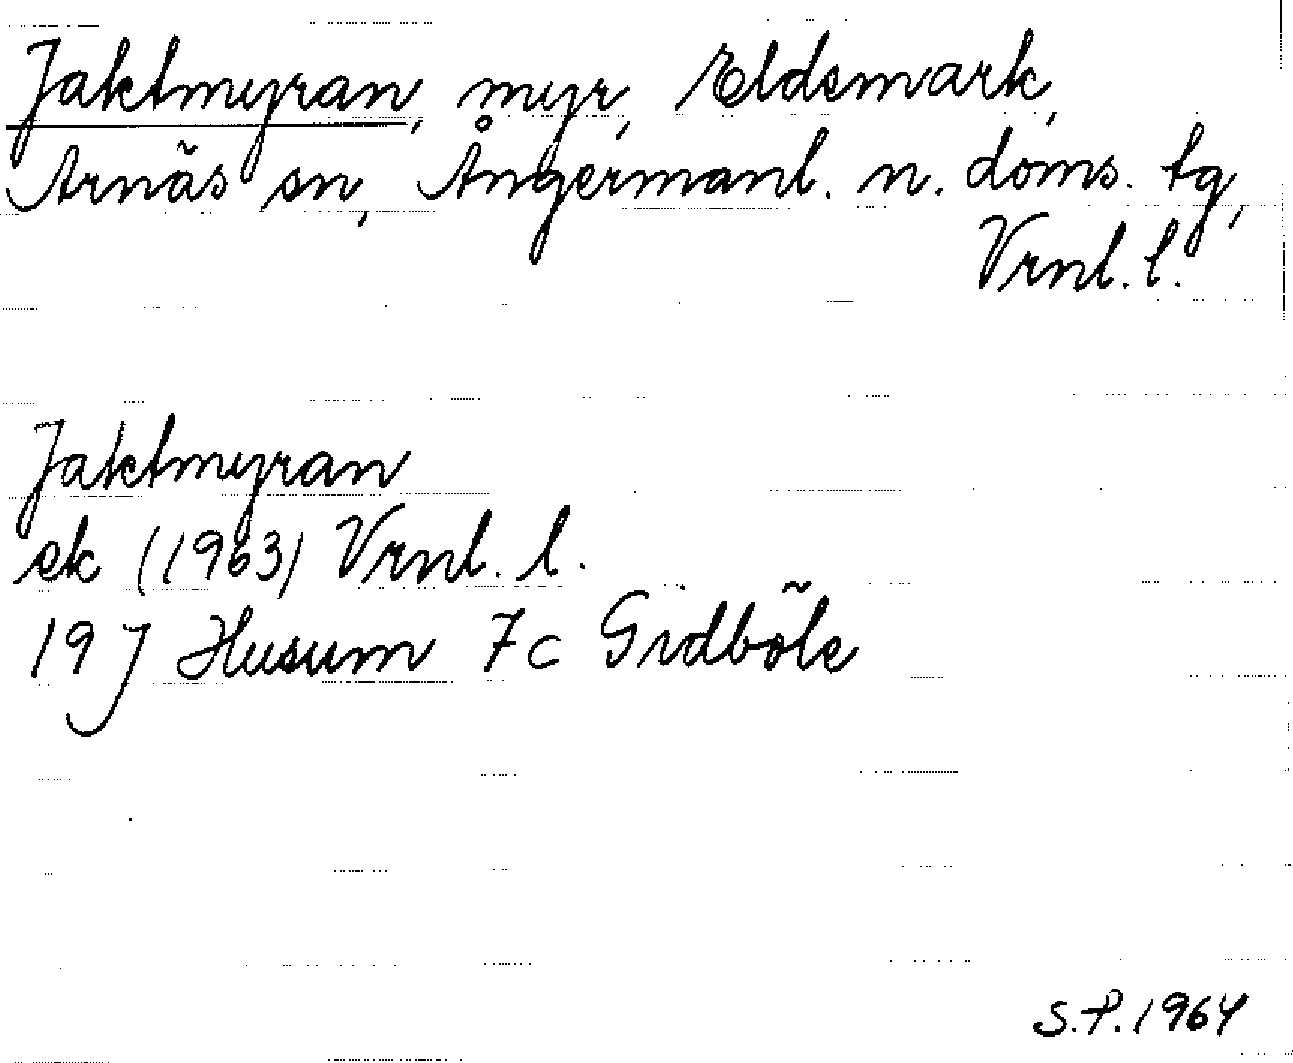 Jaktmyran, myr, Eldsmark,
Arnäs sn, Ångermanl. n. doms. tg,
Vrnl. l.
Jaktmyran
ek (1963) Vrnl. l.
19 J Husum 7c Gidböle
S.P. 1964